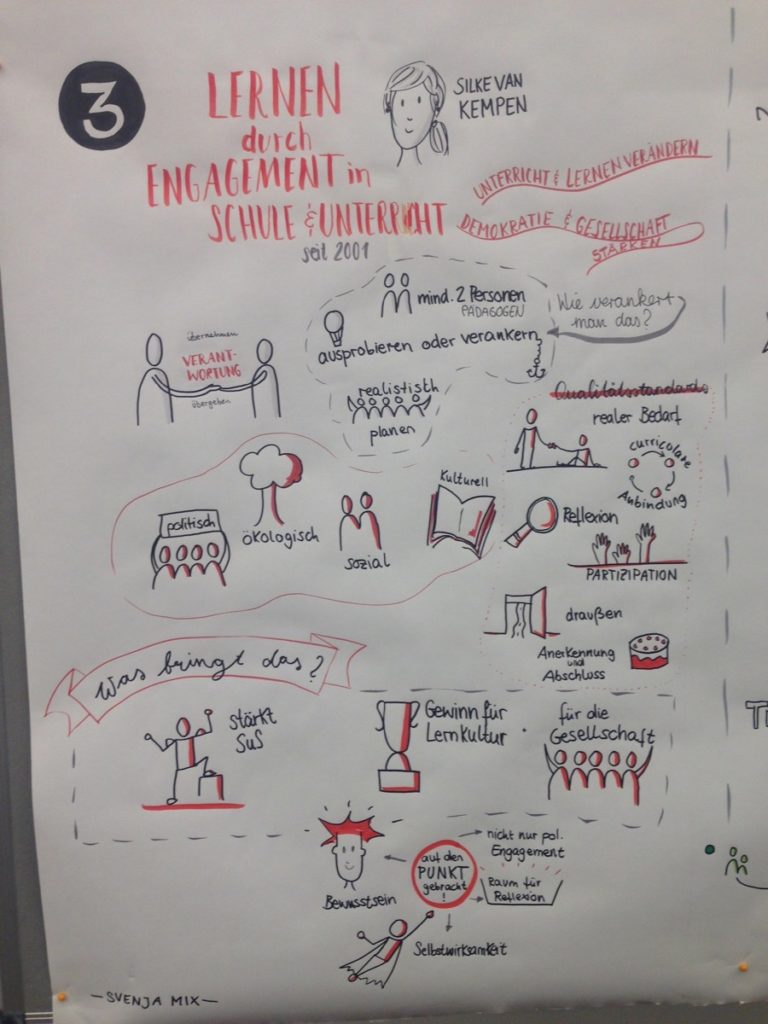 3
LERNEN
durch
ENGAGEMENT in
SCHULE & UNTERRICHT
seit 2001
SILKE VAN
KEMPEN
UNTERRICHT & LERNEN VERÄNDERN
DEMOKRATIE & GESELLSCHAFT
STÄRKEN
mind. 2 Personen
PÄDAGOGEN
ausprobieren oder verankern
Wie verankert
man das?
realistisch
planen
übernehmen
VERANT-
WORTUNG
übergeben
Qualitätsstandards
realer Bedarf
curriculare
Anbindung
Reflexion
PARTIZIPATION
draußen
Anerkennung
und
Abschluss
politisch
ökologisch
sozial
Kulturell
Was bringt das?
stärkt
SuS
Gewinn für
Lernkultur
für die
Gesellschaft
auf den
PUNKT
gebracht
!
nicht nur pol.
Engagement
Raum für
Reflexion
Bewusstsein
Selbstwirksamkeit
—SVENJA MIX—